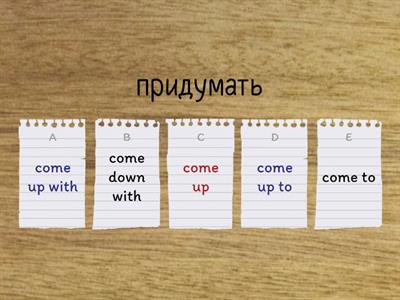 придумать
A
come
up with
B
come
down
with
C
come
up
D
come
up to
E
come to